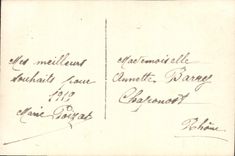 Mes meilleurs
souhaits pour
1919
Marie
Mademoiselle
Annette Barney
Chaponost
Rhône